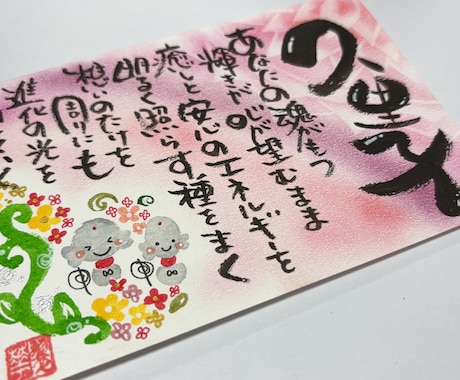 の里子
あなたの魂がもつ
輝きが心が望むまま
癒しと安心のエネルギーを
明るく照らす種をまく
想いのたけを
周りにも
進化の光を